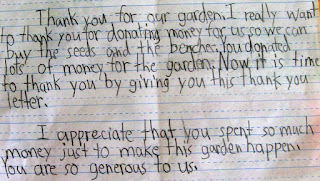 Thank you for our garden. I really want
to thank you for donating money for us so we can
buy the seeds and the benches. You donated
lots of money for the garden. Now it is time
to thank you by giving you this thank you
letter.
I appreciate that you spent so much
money just to make this garden happen.
You are so generous to us.